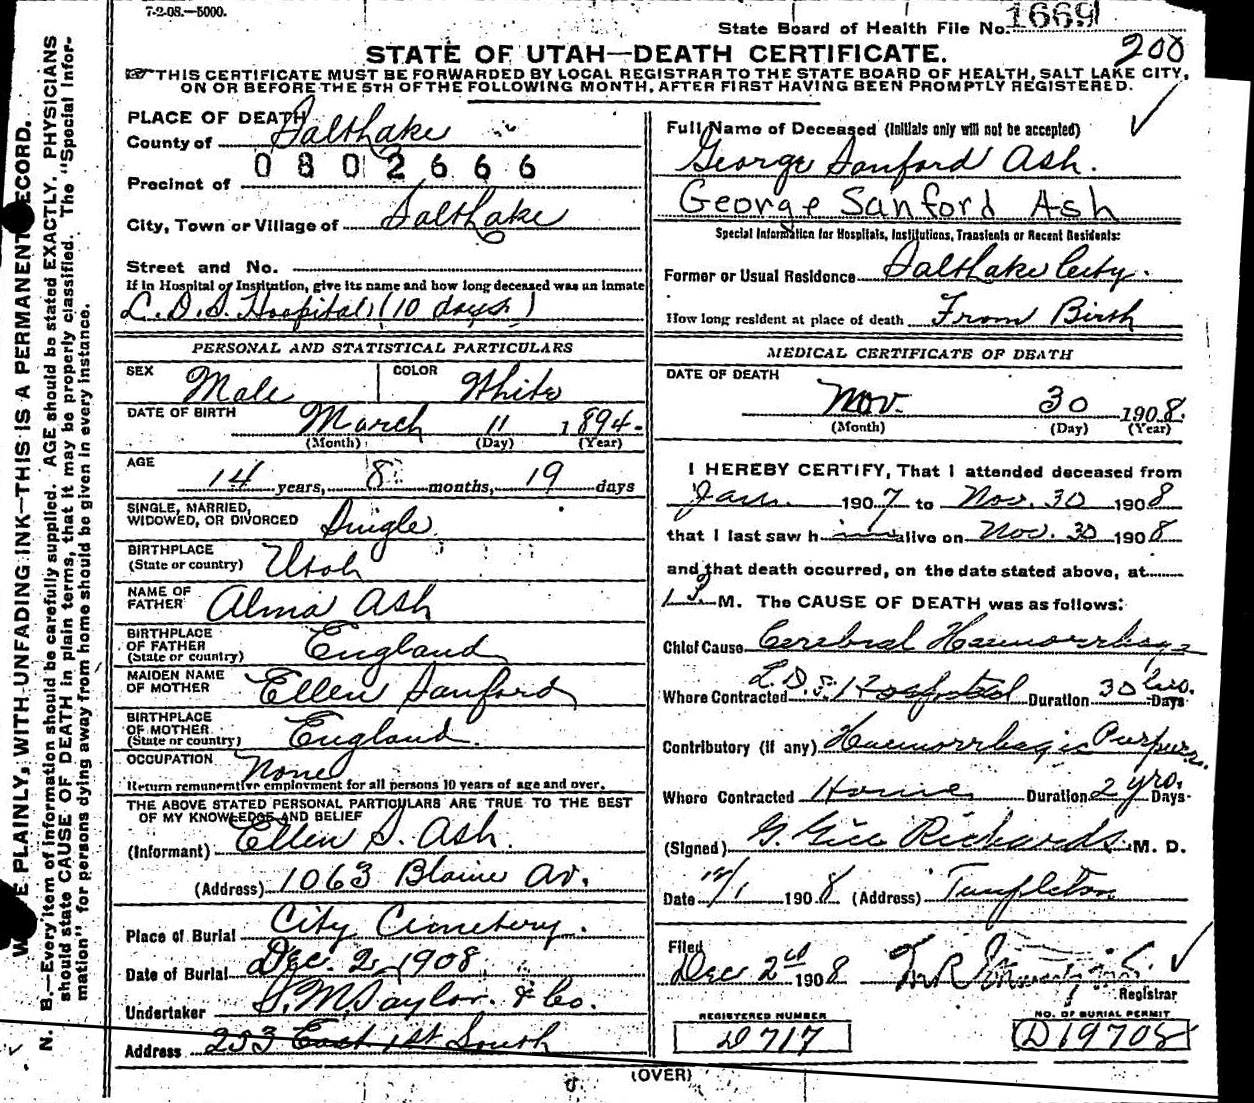 7-2-08.—5000.
State Board of Health File No. 1669
200
STATE OF UTAH—DEATH CERTIFICATE.
THIS CERTIFICATE MUST BE FORWARDED BY LOCAL REGISTRAR TO THE STATE BOARD OF HEALTH, SALT LAKE CITY,
ON OR BEFORE THE 5TH OF THE FOLLOWING MONTH, AFTER FIRST HAVING BEEN PROMPTLY REGISTERED.
PLACE OF DEATH
County of Salt Lake
0802666
Precinct of
City, Town or Village of Salt Lake
Street and No.
If in Hospital or Institution, give its name and how long deceased was an inmate
L. D. S. Hospital (10 days)
PERSONAL AND STATISTICAL PARTICULARS
SEX Male COLOR White
DATE OF BIRTH March 11 1894
(Month) (Day) (Year)
AGE 14 years, 8 months, 19 days
SINGLE, MARRIED,
WIDOWED, OR DIVORCED Single
BIRTHPLACE
(State or country) Utah
NAME OF
FATHER Alma Ash
BIRTHPLACE
OF FATHER
(State or country) England
MAIDEN NAME
OF MOTHER Ellen Sanford
BIRTHPLACE
OF MOTHER
(State or country) England.
OCCUPATION None
Return remunerative employment for all persons 10 years of age and over.
THE ABOVE STATED PERSONAL PARTICULARS ARE TRUE TO THE BEST
OF MY KNOWLEDGE AND BELIEF
(Informant) Ellen S. Ash.
(Address) 1063 Blaine Av.
Place of Burial City Cemetery.
Date of Burial Dec. 2, 1908
Undertaker S. M. Taylor & Co.
Address 253 East 1st South
Full Name of Deceased (Initials only will not be accepted)
George Sanford Ash.
George Sanford Ash
Special Information for Hospitals, Institutions, Transients or Recent Residents:
Former or Usual Residence Salt Lake City.
How long resident at place of death From Birth
MEDICAL CERTIFICATE OF DEATH
DATE OF DEATH
Nov. 30 1908.
(Month) (Day) (Year)
I HEREBY CERTIFY, That I attended deceased from
Jan. 1907 to Nov. 30 1908
that I last saw him alive on Nov. 30 1908
and that death occurred, on the date stated above, at
1 P. M. The CAUSE OF DEATH was as follows:
Chief Cause Cerebral Haemorrhage
Where Contracted L. D. S. Hospital Duration 30 hrs. Days
Contributory (if any) Haemorrhagic Purpura.
Where Contracted Home Duration 2 yrs. Days
(Signed) G. Gill Richards M. D.
Date 12/1 1908 (Address) Templeton
Filed
Dec 2nd 1908
Registrar
REGISTERED NUMBER
D 717
NO. OF BURIAL PERMIT
D 19708
(OVER)
PLAINLY, WITH UNFADING INK—THIS IS A PERMANENT RECORD.
N. B.—Every item of information should be carefully supplied. AGE should be stated EXACTLY. PHYSICIANS
should state CAUSE OF DEATH in plain terms, that it may be properly classified. The "Special Infor-
mation" for persons dying away from home should be given in every instance.